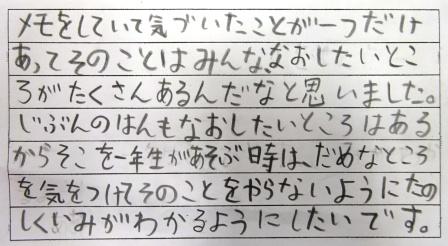 メモをしていて気づいたことが一つだけ
あってそのことはみんな、なおしたいとこ
ろがたくさんあるんだなと思いました。
じぶんのはんもなおしたいところはある
からそこを一年生があそぶ時は、だめなところ
を気をつけてそのことをやらないようにたの
しくいみがわかるようにしたいです。